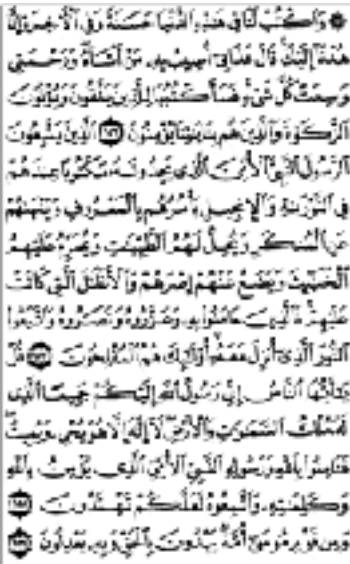 ۞ وَٱكْتُبْ لَنَا فِى هَٰذِهِ ٱلدُّنْيَا حَسَنَةً وَفِى ٱلْءَاخِرَةِ إِنَّا
هُدْنَآ إِلَيْكَ قَالَ عَذَابِىٓ أُصِيبُ بِهِۦ مَنْ أَشَآءُ وَرَحْمَتِى
وَسِعَتْ كُلَّ شَىْءٍ فَسَأَكْتُبُهَا لِلَّذِينَ يَتَّقُونَ وَيُؤْتُونَ
ٱلزَّكَوٰةَ وَٱلَّذِينَ هُم بِـَٔايَٰتِنَا يُؤْمِنُونَ ١٥٦ ٱلَّذِينَ يَتَّبِعُونَ
ٱلرَّسُولَ ٱلنَّبِىَّ ٱلْأُمِّىَّ ٱلَّذِى يَجِدُونَهُۥ مَكْتُوبًا عِندَهُمْ
فِى ٱلتَّوْرَىٰةِ وَٱلْإِنجِيلِ يَأْمُرُهُم بِٱلْمَعْرُوفِ وَيَنْهَىٰهُمْ
عَنِ ٱلْمُنكَرِ وَيُحِلُّ لَهُمُ ٱلطَّيِّبَٰتِ وَيُحَرِّمُ عَلَيْهِمُ
ٱلْخَبَٰٓئِثَ وَيَضَعُ عَنْهُمْ إِصْرَهُمْ وَٱلْأَغْلَٰلَ ٱلَّتِى كَانَتْ
عَلَيْهِمْ فَٱلَّذِينَ ءَامَنُوا۟ بِهِۦ وَعَزَّرُوهُ وَنَصَرُوهُ وَٱتَّبَعُوا۟
ٱلنُّورَ ٱلَّذِىٓ أُنزِلَ مَعَهُۥٓ أُو۟لَٰٓئِكَ هُمُ ٱلْمُفْلِحُونَ ١٥٧ قُلْ
يَٰٓأَيُّهَا ٱلنَّاسُ إِنِّى رَسُولُ ٱللَّهِ إِلَيْكُمْ جَمِيعًا ٱلَّذِى
لَهُۥ مُلْكُ ٱلسَّمَٰوَٰتِ وَٱلْأَرْضِ لَآ إِلَٰهَ إِلَّا هُوَ يُحْىِۦ وَيُمِيتُ
فَـَٔامِنُوا۟ بِٱللَّهِ وَرَسُولِهِ ٱلنَّبِىِّ ٱلْأُمِّىِّ ٱلَّذِى يُؤْمِنُ بِٱللَّهِ
وَكَلِمَٰتِهِۦ وَٱتَّبِعُوهُ لَعَلَّكُمْ تَهْتَدُونَ ١٥٨
وَمِن قَوْمِ مُوسَىٰٓ أُمَّةٌ يَهْدُونَ بِٱلْحَقِّ وَبِهِۦ يَعْدِلُونَ ١٥٩